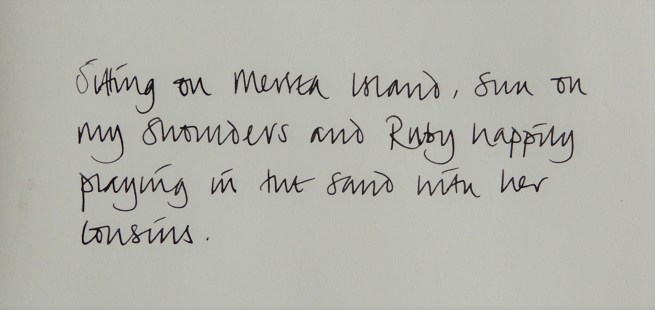 Sitting on Mersea Island, sun on
my shoulders and Ruby happily
playing in the sand with her
cousins.